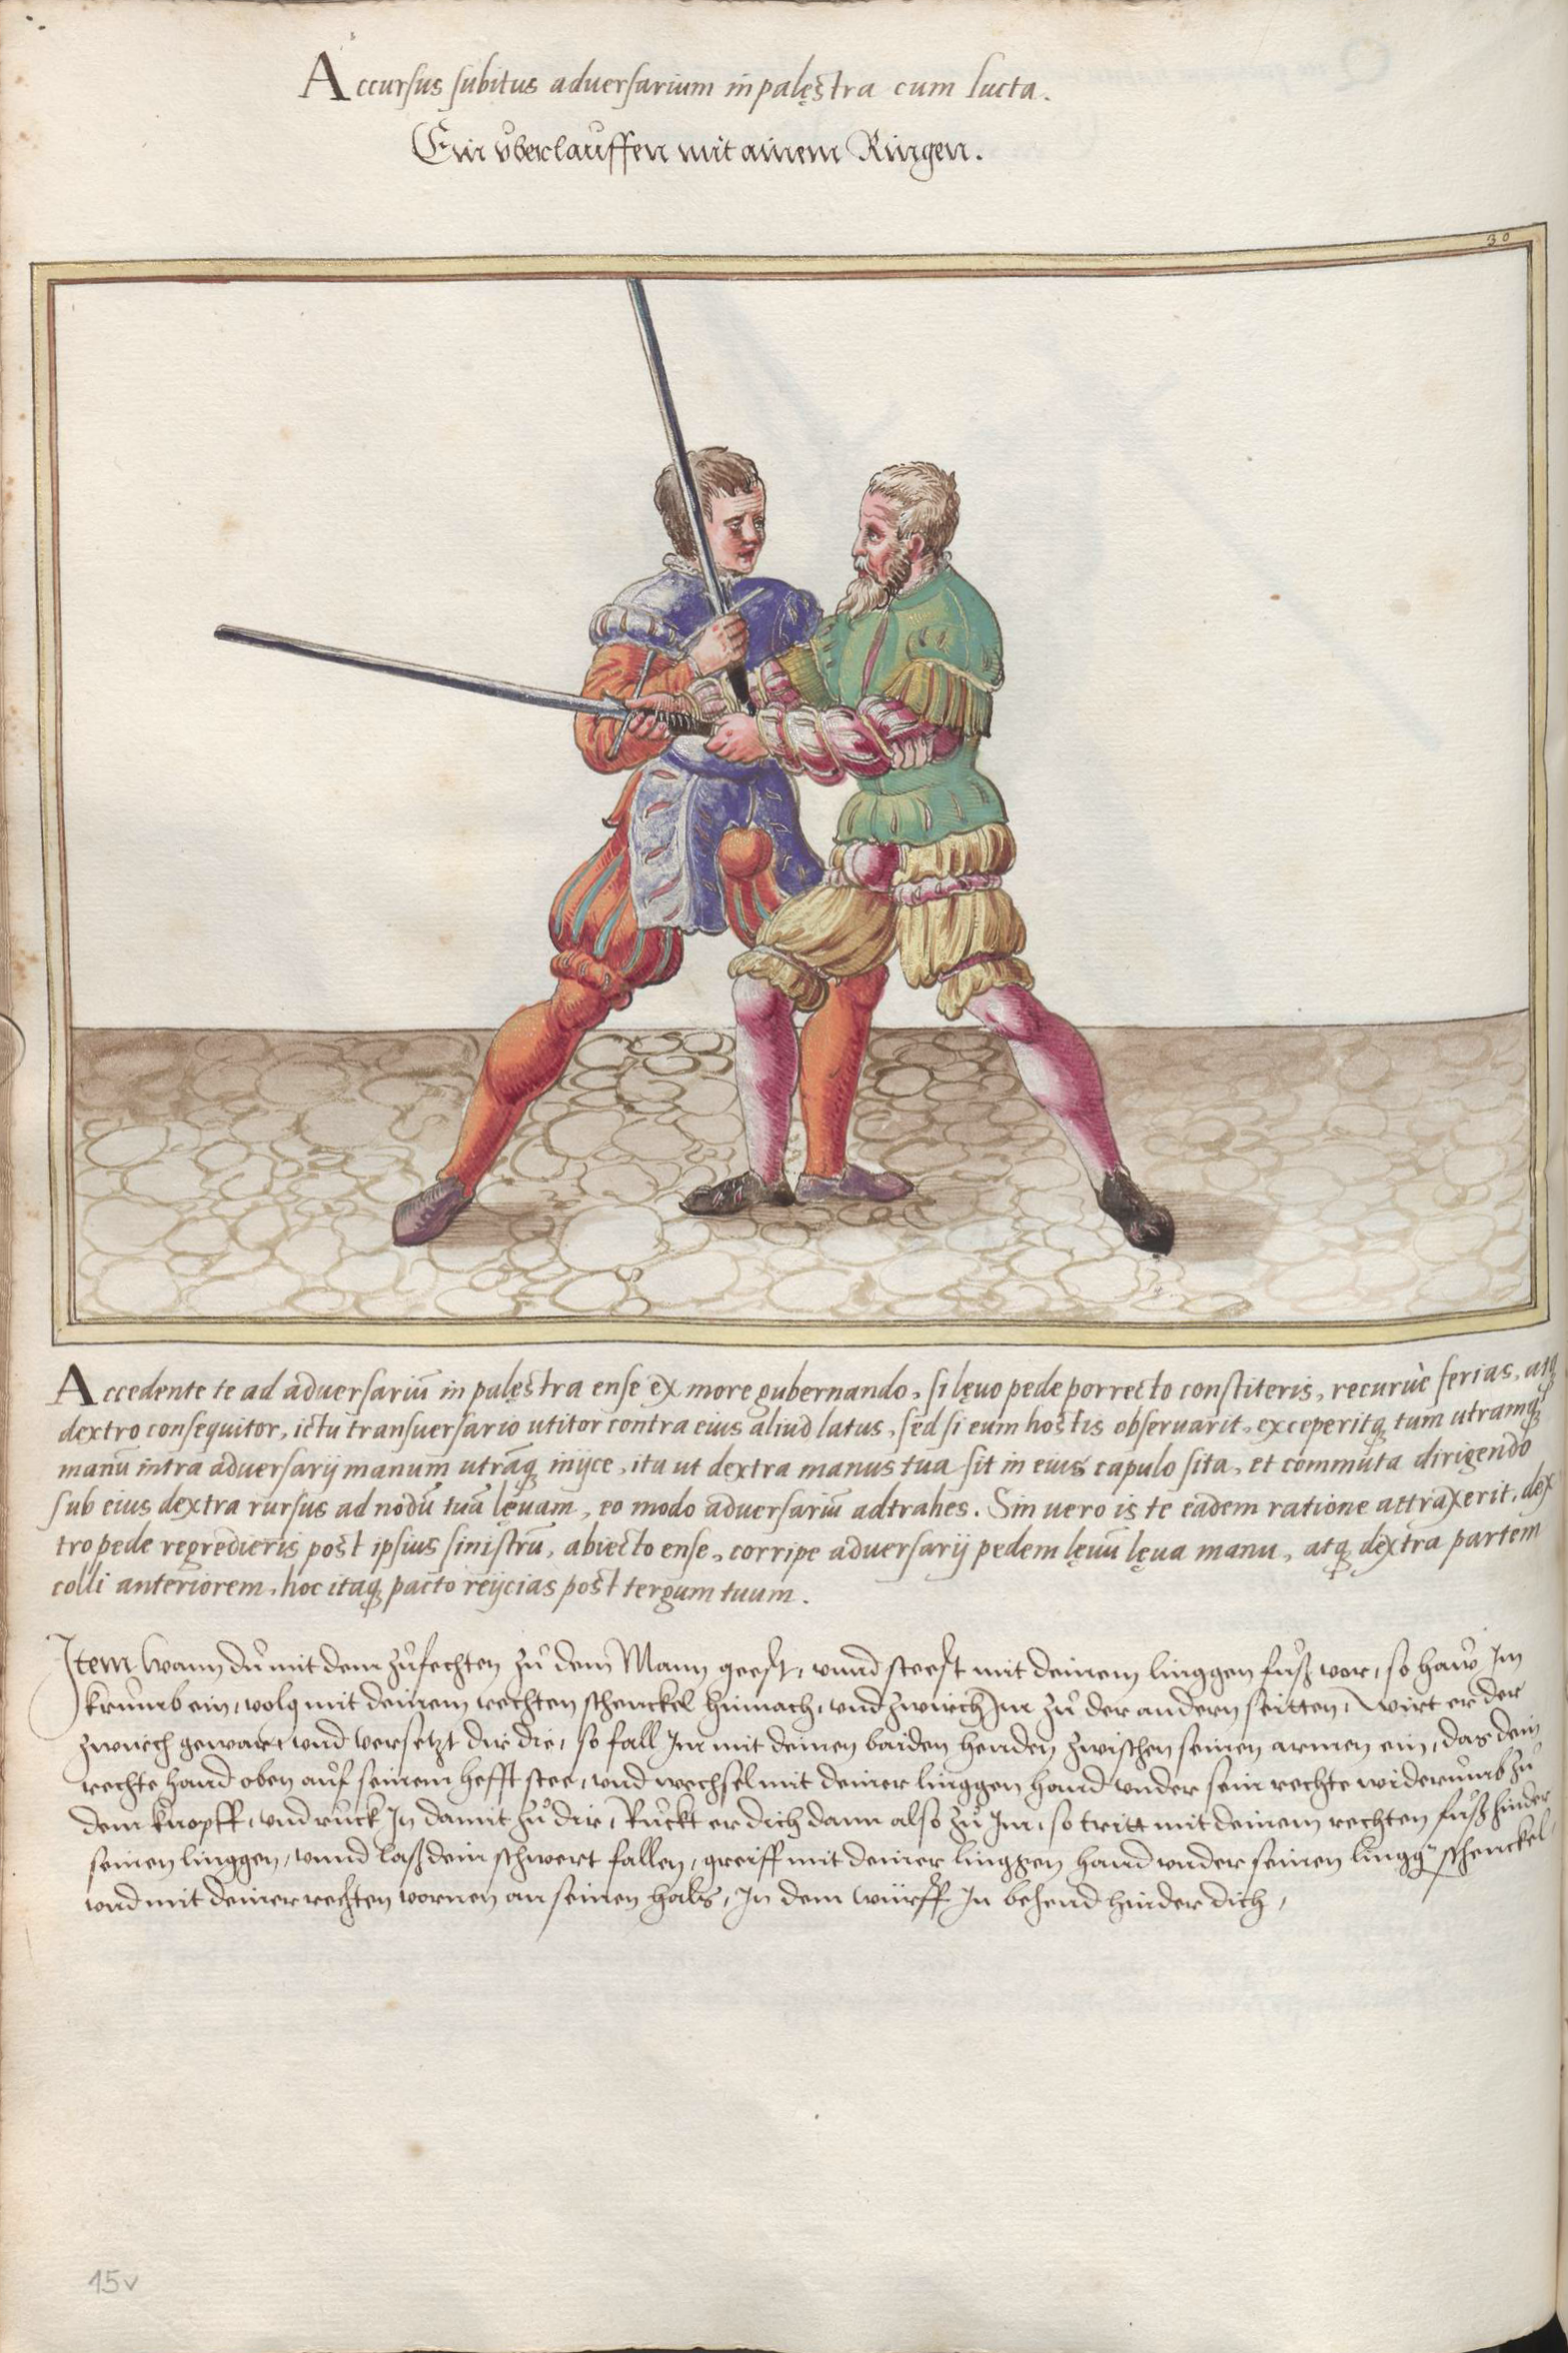 Accursus subitus adversarium in palęstra cum lucta.
Ein v̊berlauffen mit ainem Ringen.
30
Accedente te ad adversariū in palęstra ense ex more gubernando, si lęvo pede porrecto constiteris, recurvè ferias, atq
dextro consequitor, ictu transversario utitor contra eius aliud latus, sed si eum hostis observarit, exceperitq tum utramq
manū intra adversarij manum utrāq inijce, ita ut dextra manus tua sit in eius capulo sita, et commuta dirigendo
sub eius dextra rursus ad nodū tuā lęvam, eo modo adversariū adtrahes. Sin vero is te eadem ratione attraxerit, dex
tro pede regredieris post ipsius sinistrū, abiecto ense, corripe adversarij pedem lęvū lęva manu, atq dextra partem
colli anteriorem, hoc itaq pacto reijcias post tergum tuum.
Item wann dů mit dem zůfechten zů dem Mann geest, vnnd steest mit deinem linggen fůß vor, so haw Im
krůmb ein, volg mit deinem rechten schenckel hinnach, vnd zwirch Im zů der andern seitten, Wirt er der
zwirch gewar, vnd versetzt dir die, so fall Im mit deinen baiden henden zwischen seinen armen ein, das dein
rechte hand oben aůf seinem hefft stee, vnd wechsel mit deiner linggen hand vnder sein rechte widerůmb zů
dem knopff, vnd růck In damit zů dir, Růckt er dich dann also zů Im, so tritt mit deinem rechten fůß hinder
seinen linggen, vnnd laß dein schwert fallen, greiff mit deiner linggen hand vnder seinen lingg̅ schenckel,
vnd mit deiner rechten vornen an seinen hals, In dem würff In behend hinder dich,
15v